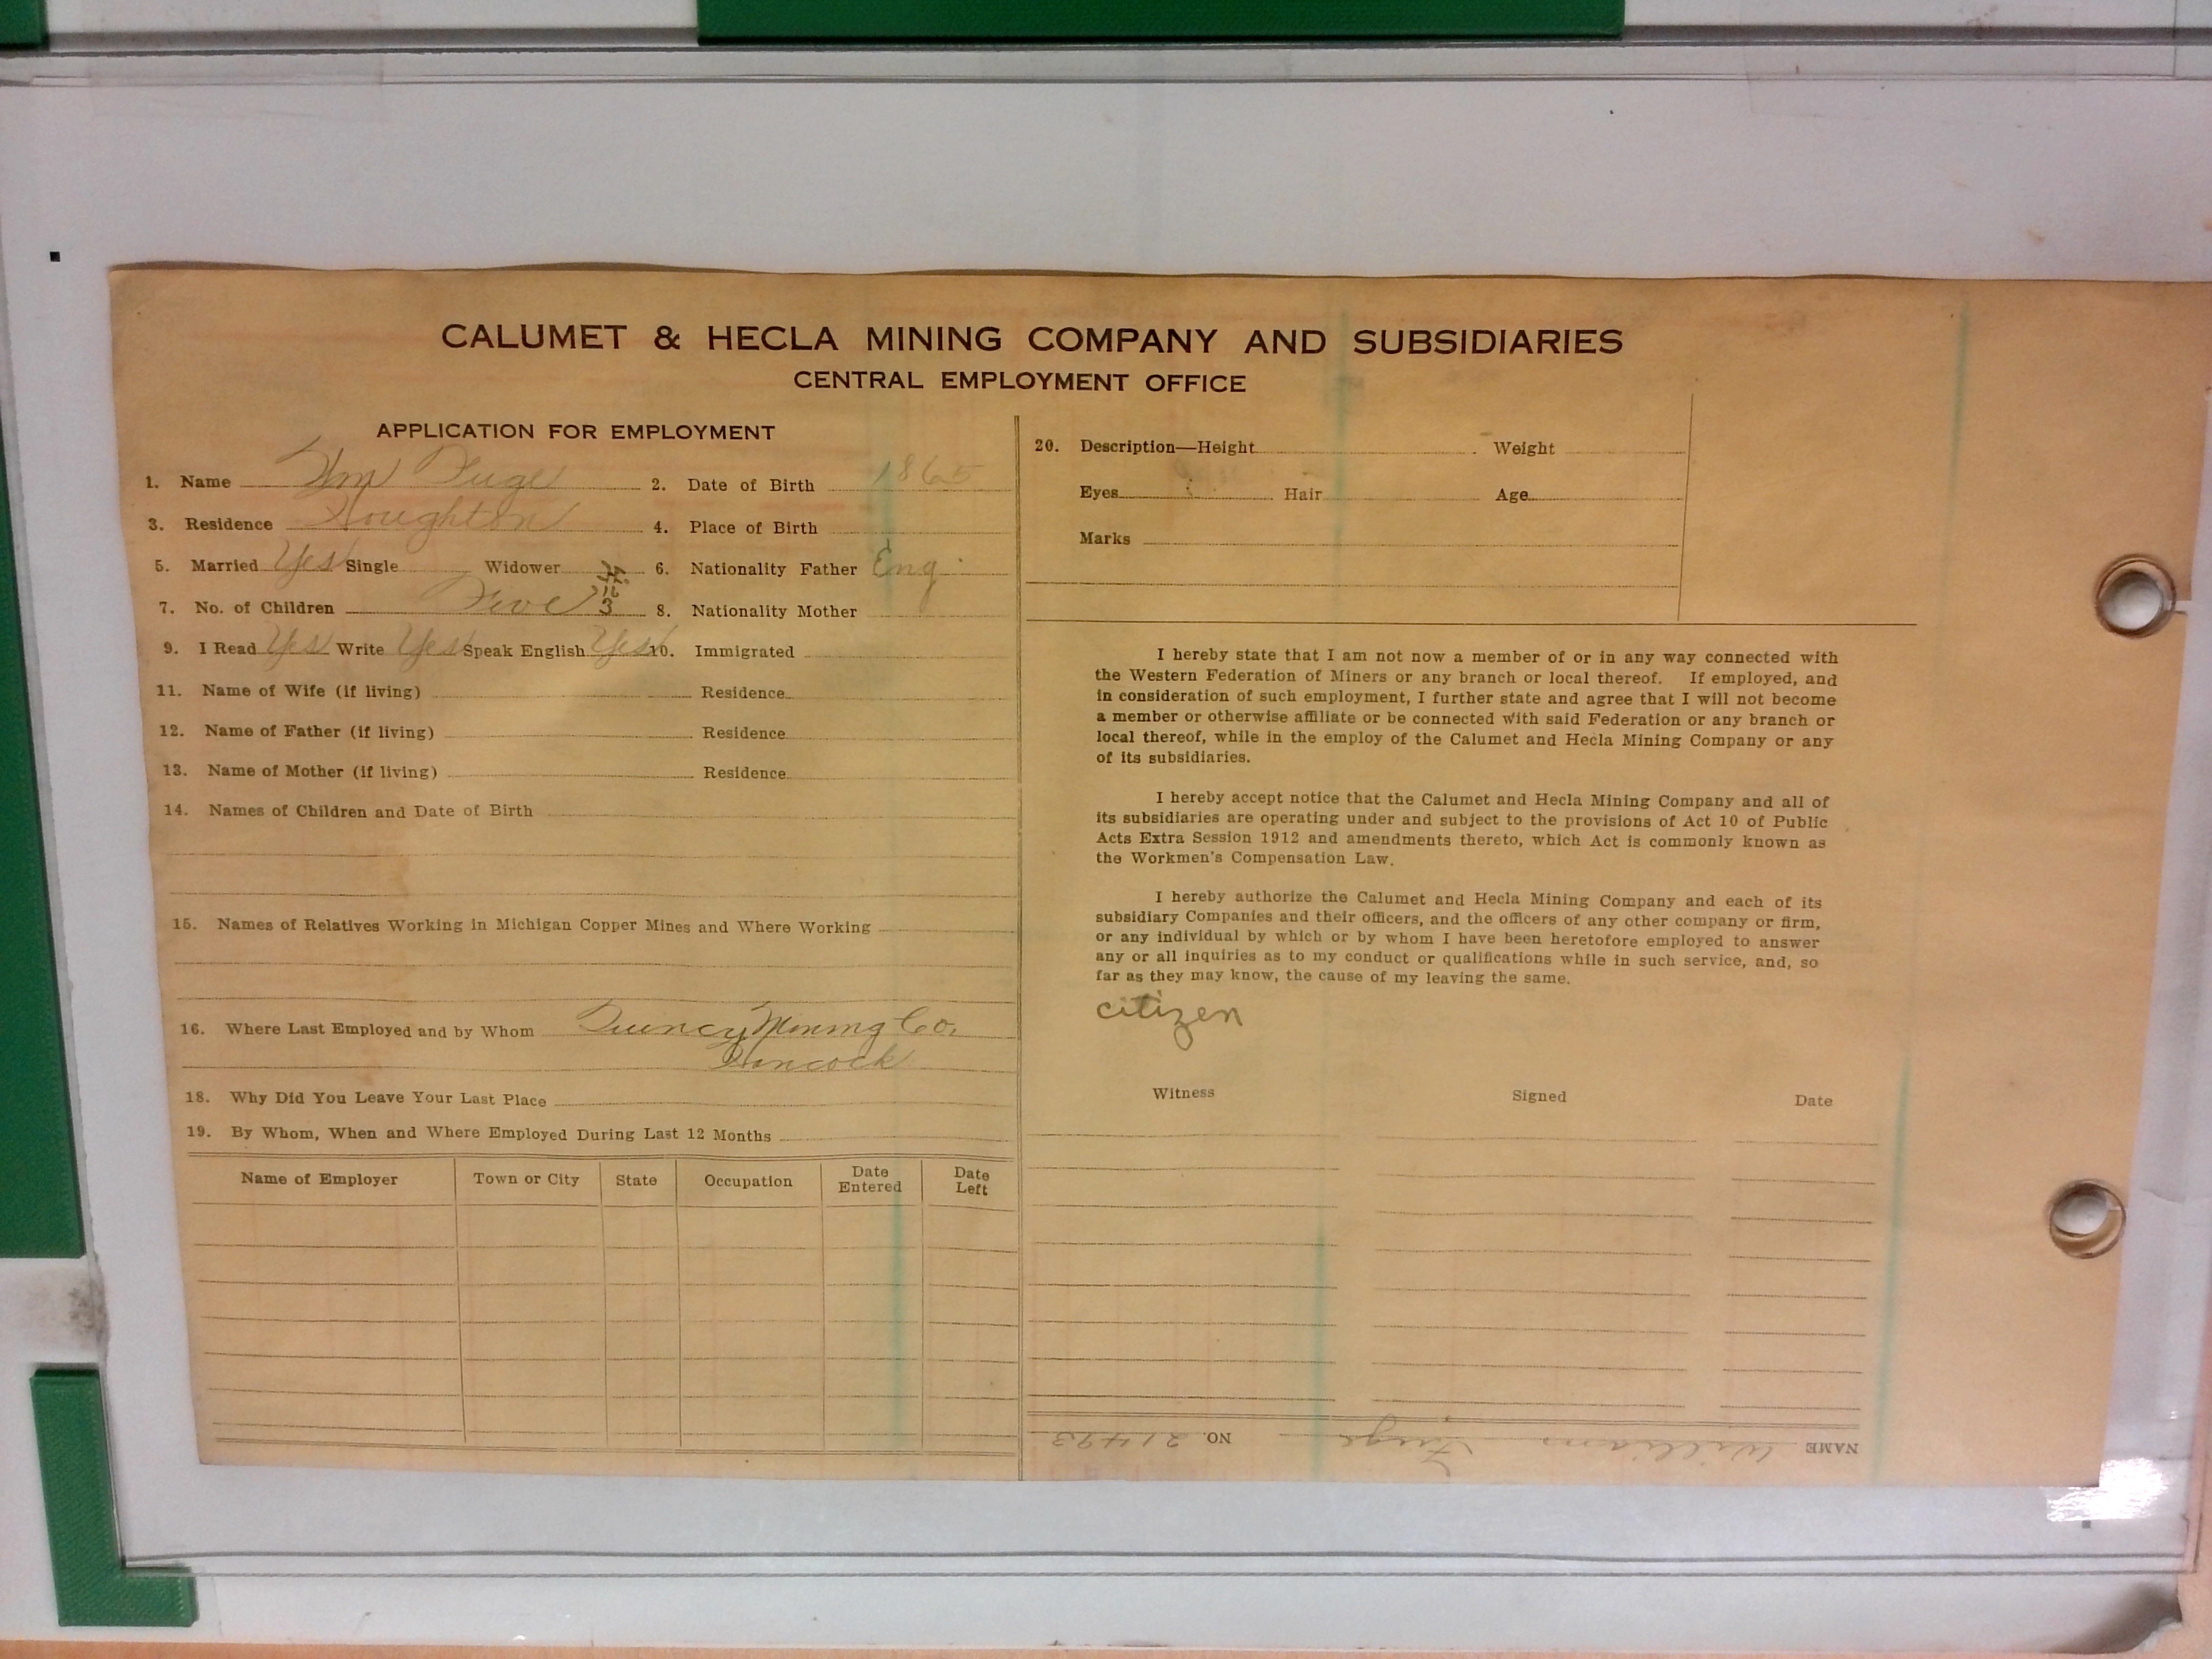 CALUMET & HECLA MINING COMPANY AND SUBSIDIARIES
CENTRAL EMPLOYMENT OFFICE
APPLICATION FOR EMPLOYMENT
1. Name Wm Fuge 2. Date of Birth 1865
3. Residence Houghton 4. Place of Birth
5. Married Yes Single Widower 6. Nationality Father Eng.
7. No. of Children Five 16 3 8. Nationality Mother
9. I Read Yes Write Yes Speak English Yes 10. Immigrated
11. Name of Wife (if living) Residence
12. Name of Father (if living) Residence
13. Name of Mother (if living) Residence
14. Names of Children and Date of Birth
15. Names of Relatives Working in Michigan Copper Mines and Where Working
16. Where Last Employed and by Whom Quincy Mining Co.
Hancock
18. Why Did You Leave Your Last Place
19. By Whom, When and Where Employed During Last 12 Months
Name of Employer Town or City State Occupation Date Entered Date Left
20. Description—Height Weight
Eyes Hair Age
Marks
I hereby state that I am not now a member of or in any way connected with
the Western Federation of Miners or any branch or local thereof. If employed, and
in consideration of such employment, I further state and agree that I will not become
a member or otherwise affiliate or be connected with said Federation or any branch or
local thereof, while in the employ of the Calumet and Hecla Mining Company or any
of its subsidiaries.
I hereby accept notice that the Calumet and Hecla Mining Company and all of
its subsidiaries are operating under and subject to the provisions of Act 10 of Public
Acts Extra Session 1912 and amendments thereto, which Act is commonly known as
the Workmen's Compensation Law.
I hereby authorize the Calumet and Hecla Mining Company and each of its
subsidiary Companies and their officers, and the officers of any other company or firm,
or any individual by which or by whom I have been heretofore employed to answer
any or all inquiries as to my conduct or qualifications while in such service, and, so
far as they may know, the cause of my leaving the same.
citizen
Witness Signed Date
NAME William Fuge NO. 21493